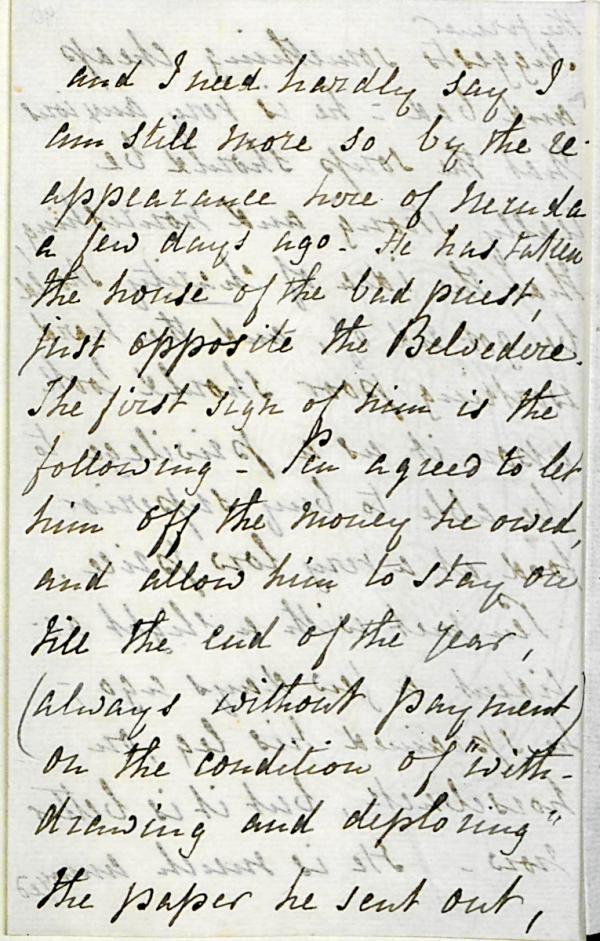 and I need hardly say I
am still more so by the re-
appearance here of Neruda
a few days ago - He has taken
the house of the bad priest,
just opposite the Belvedere.
The first sign of him is the
following - Pen agreed to let
him off the money he owed,
and allow him to stay on
till the end of the year,
(always without payment)
on the condition of "with-
drawing and deploring"
the paper he sent out,